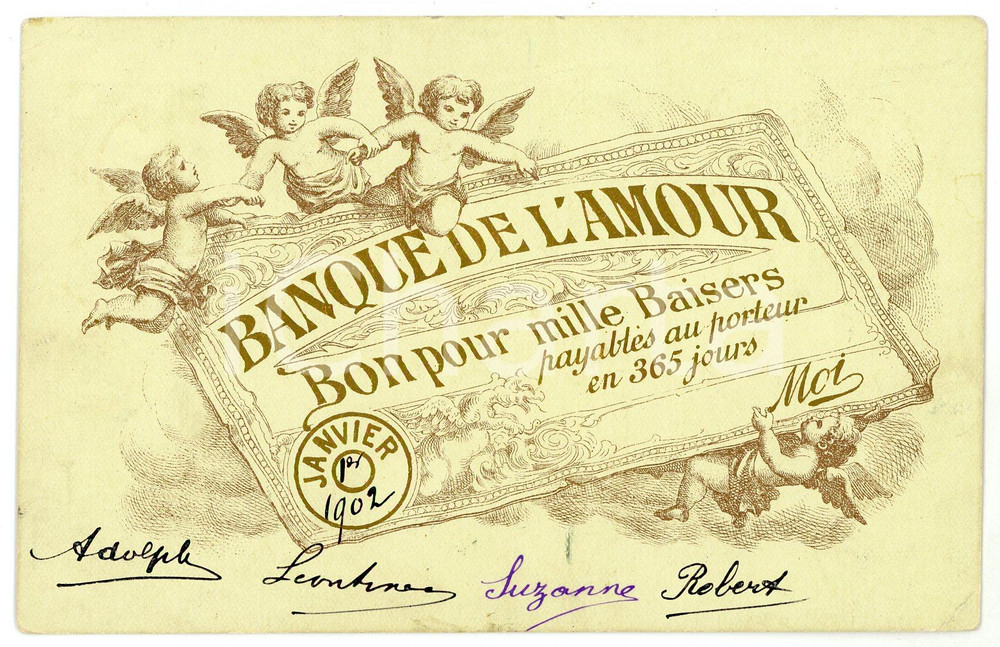 BANQUE DE L'AMOUR
Bon pour mille Baisers
payables au porteur
en 365 jours
Moi
JANVIER
1er
1902
Adolph
Leontine
Suzanne
Robert